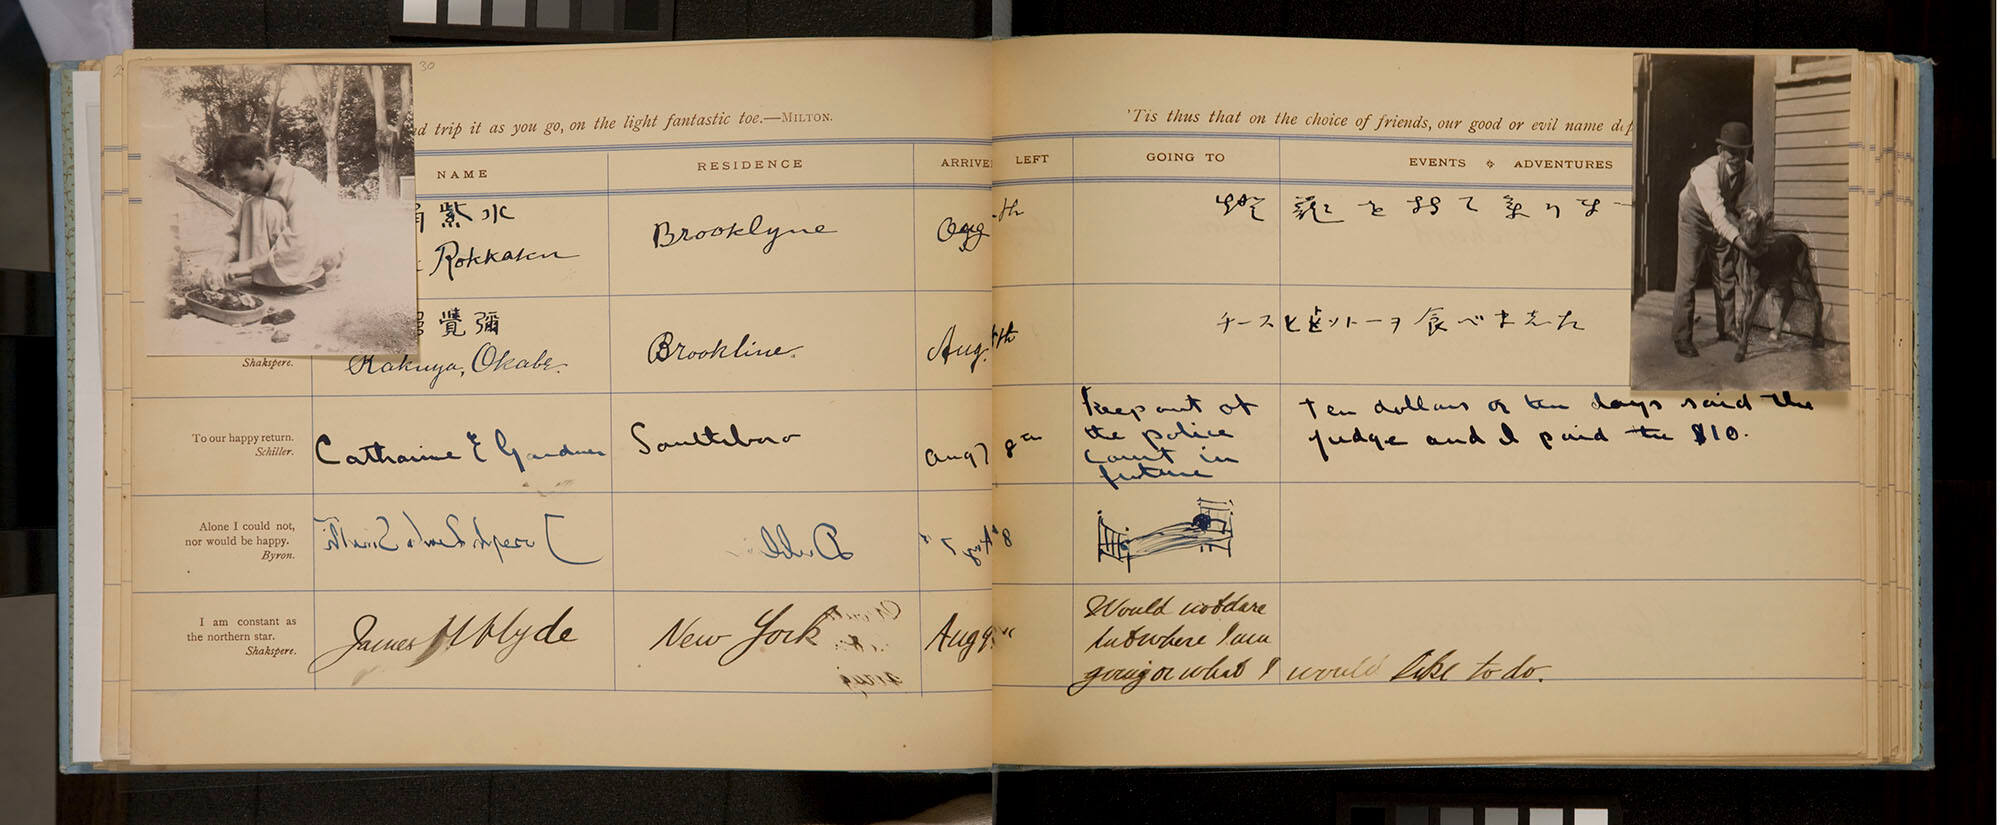 30
trip it as you go, on the light fantastic toe.—MILTON.
'Tis thus that on the choice of friends, our good or evil name
NAME
RESIDENCE
ARRIVE
LEFT
GOING TO
EVENTS ADVENTURES
紫水
Rokkaku
Brooklyne
Aug
th
を
て
覺彌
Kakuya, Okabe.
Shakspere.
Brookline.
Aug.
th
チース
食べました
To our happy return.
Schiller.
Catharine E Gardner
Aug 7
8th
Keep out of
the police
court in
future
ten dollars or ten days said the
judge and I paid the $10.
Alone I could not,
nor would be happy.
Byron.
Joseph Lindon Smith
Dubl
Aug 7
8
I am constant as
the northern star.
Shakspere.
James H Hyde
New York
Aug 9
Would not dare
but where I am
going or what I would like to do.